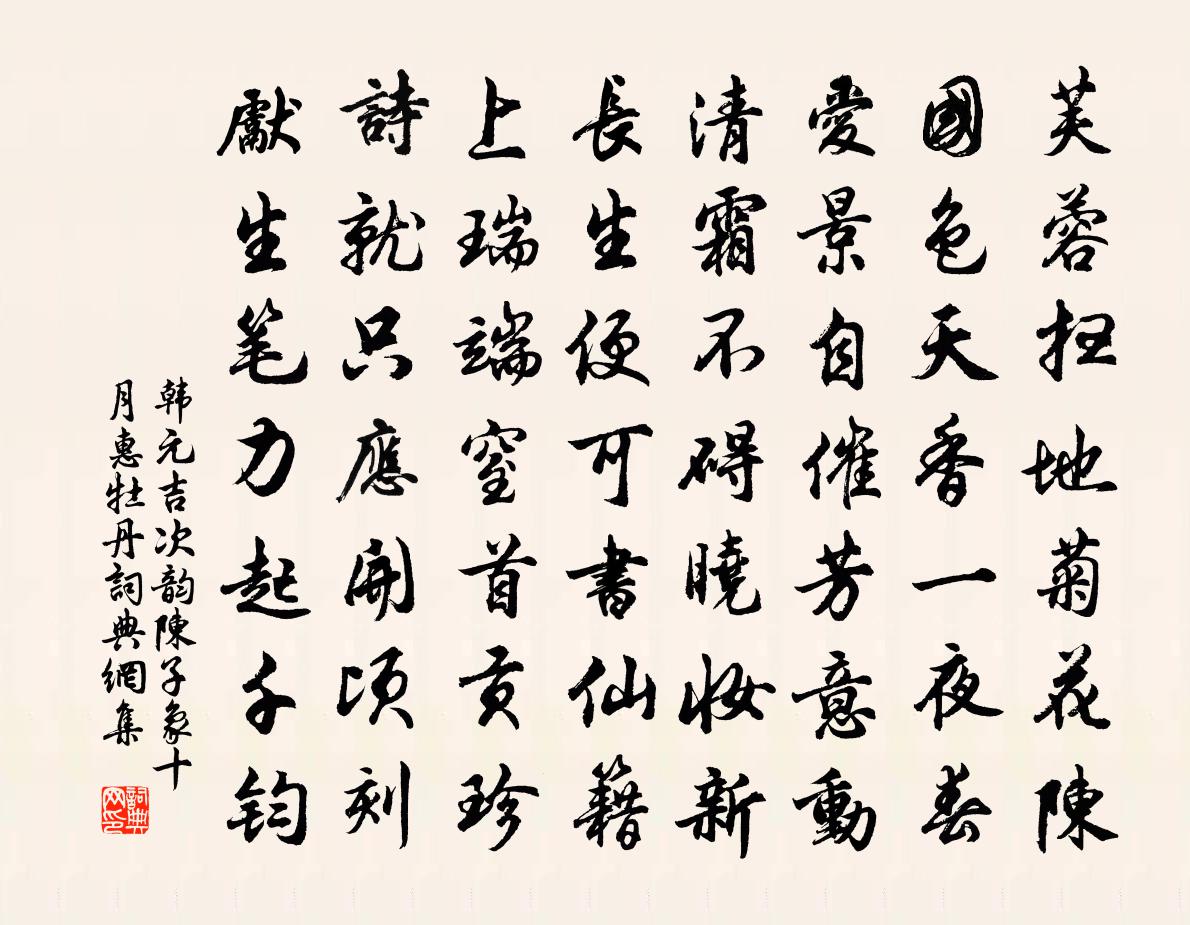 芙蓉扫地菊花陳
國色天香一夜春
愛景自催芳意動
清霜不碍曉妝新
長生便可書仙籍
上瑞端窒首贡珍
詩就只應開頃刻
獻生笔力起千钧
韩元吉次韵陳子象十
月惠牡丹詞典網集
詞典网印